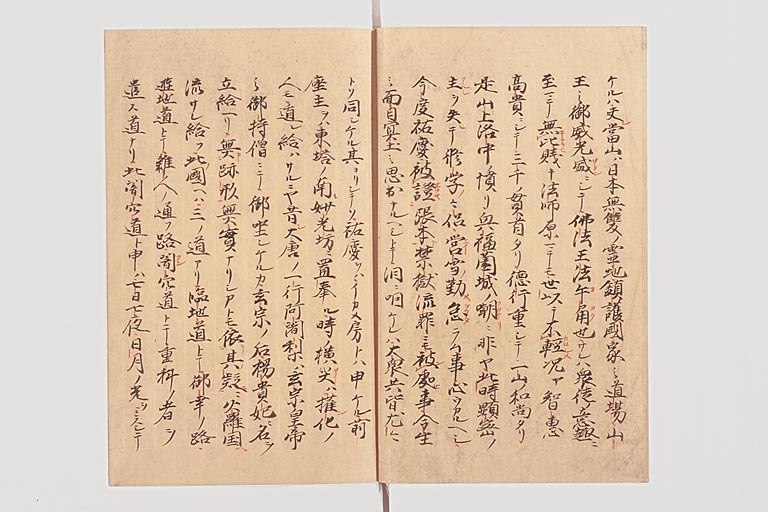 ケルハ夫當山ハ日本無雙ノ霊地鎮護國家ノ道場山
王ノ御威光盛ニシテ佛法王法牛角也サレハ衆徒ノ意趣ニ
至マテ無比賤キ法師原マテモ世以テ不軽況ヤ智恵
高貴ニシテ三千ノ貫首タリ徳行重シテ一山ノ和尚タリ
是山上洛中ノ憤リ興福薗城ノ嘲ニ非ヤ此時顕密ノ
主ヲ失テ修学ノ侶螢雪ノ勤怠ラン事心ウカルヘシ
今度祐慶被證張本禁獄流罪ニモ被處事今生
ノ面目冥土ノ思出ナルヘシトテ泪ニ咽ケレハ大衆共皆尤々
トソ同シケル其ヨリシテソ祐慶ヲハイカメ房トハ申ケル前
座主ヲハ東塔ノ南妙光坊ニ置奉ル時ノ横災ハ權化ノ
人モ遁レ給ハサルニヤ昔大唐ノ一行阿闍梨ハ玄宗皇帝
ノ御持僧ニテ御坐シケルカ玄宗ノ后楊貴妃ニ名ヲ
立給ヘリ無跡形無實ナリシカトモ依其疑ニ火羅国ヘ
流サレ給フ此國ヘハ三ノ道アリ臨地道トテ御幸ノ路
遊地道トテ雜人ノ通フ路闇穴道トテ重科ノ者ヲ
遣ス道ナリ此闇穴道ト申ハ七日七夜日月ノ光ヲミスシテ